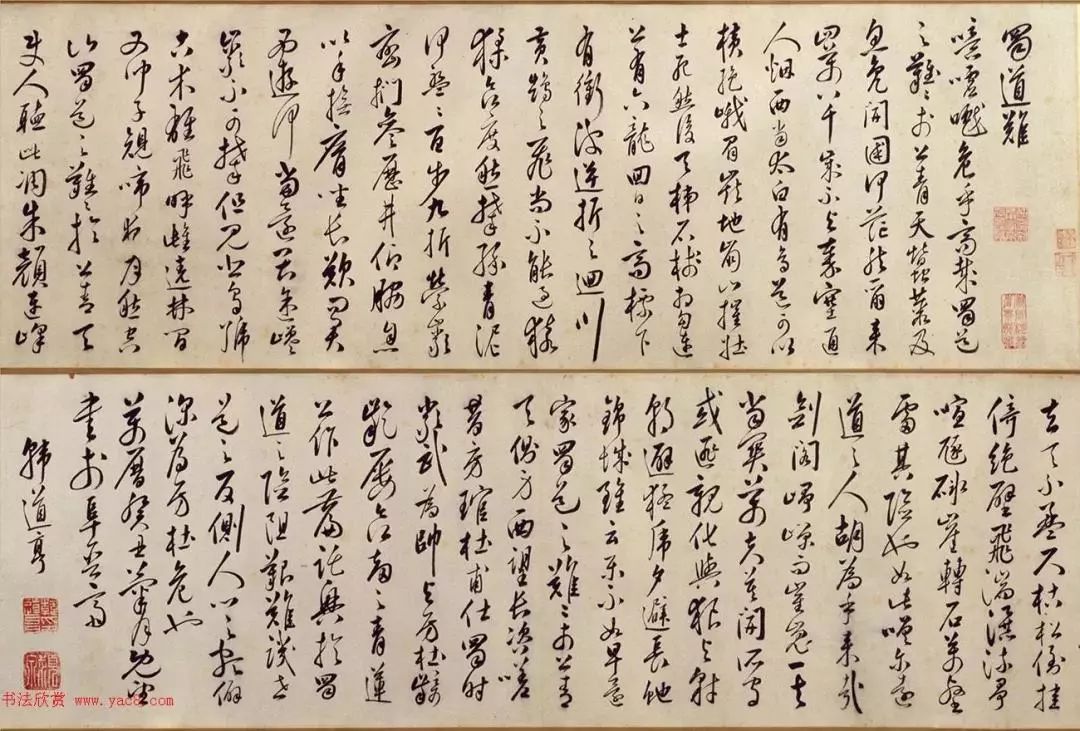 蜀道難
噫嘘嚱危乎高哉蜀道
之難難於上青天蠶叢及
魚鳧開國何茫然爾來
四萬八千歲不與秦塞通
人烟西當太白有鳥道可以
橫絕峨眉巔地崩山摧壯
士死然後天梯石棧相鈎連
上有六龍回日之高標下
有衝波逆折之迴川
黃鶴之飛尚不能過猿
猱欲度愁攀緣青泥
何盤盤百步九折縈巖
巒捫參歷井仰脅息
以手撫膺坐長歎問君
西遊何當還畏途巉
巖不可攀但見悲鳥號
古木雄飛呼雌遶林間
又聞子規啼夜月愁空
山蜀道之難難於上青天
使人聽此凋朱顏連峰
去天不盈尺枯松倒挂
倚絕壁飛湍瀑流爭
喧豗砯崖轉石萬壑
雷其險也如此嗟爾遠
道之人胡為乎來哉
劍閣崢嶸而崔嵬一夫
當關萬夫莫開所守
或匪親化與狼與豺
朝避猛虎夕避長蛇
錦城雖云樂不如早還
家蜀道之難難於上青
天側身西望長咨嗟
昔房琯杜甫仕蜀時
嚴武為帥與房杜
屢欲害之青蓮
公作此篇託興於蜀
道之險阻艱難譏世
道之反側人心之
深為房杜危也
萬曆癸丑
書於阜
韓道亨
书法欣赏 www.yac8.com